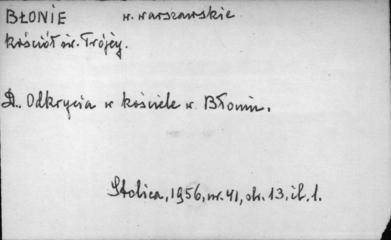 BŁONIE w. warszawskie
kościół św. Trójcy.
D., Odkrycia w kościele w Błoniu.
Stolica, 1956, nr. 41, str. 13, il. 1.